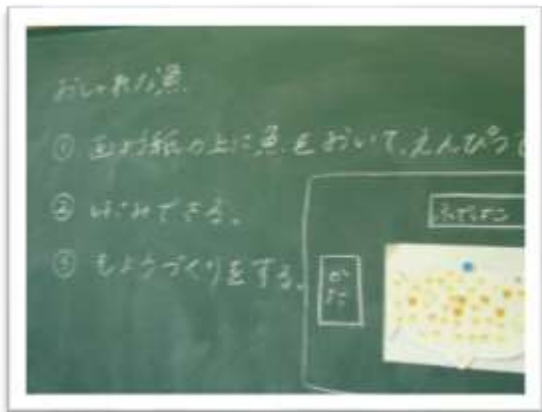 おしゃれな魚
① 画用紙の上に魚をおいて、えんぴつで
② はさみできる。
③ もようづくりをする。